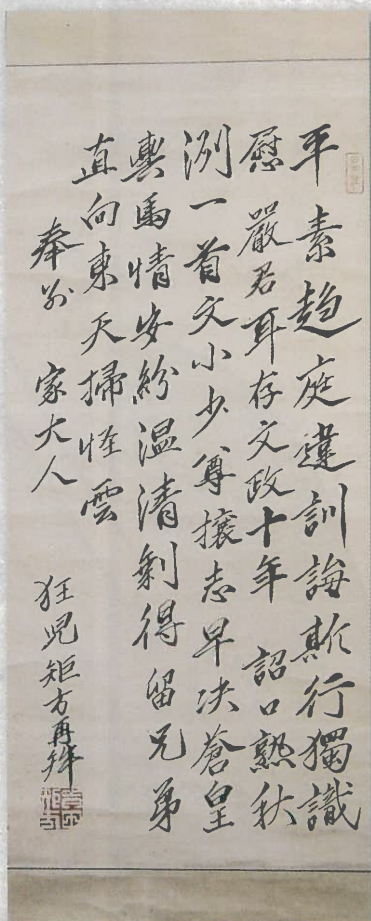 平素趨庭違訓誨斯行獨識
慰 嚴君耳存文政十年 詔口熟秋
洌一首文小少尊攘志早决蒼皇
輿馬情安紛温清剩得留兄弟
直向東天掃怪雲
奉別 家大人
狂児矩方再拜